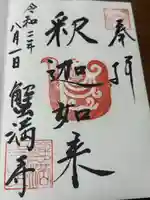 奉拝
釈迦如来
蟹満寺
令和二年
八月一日